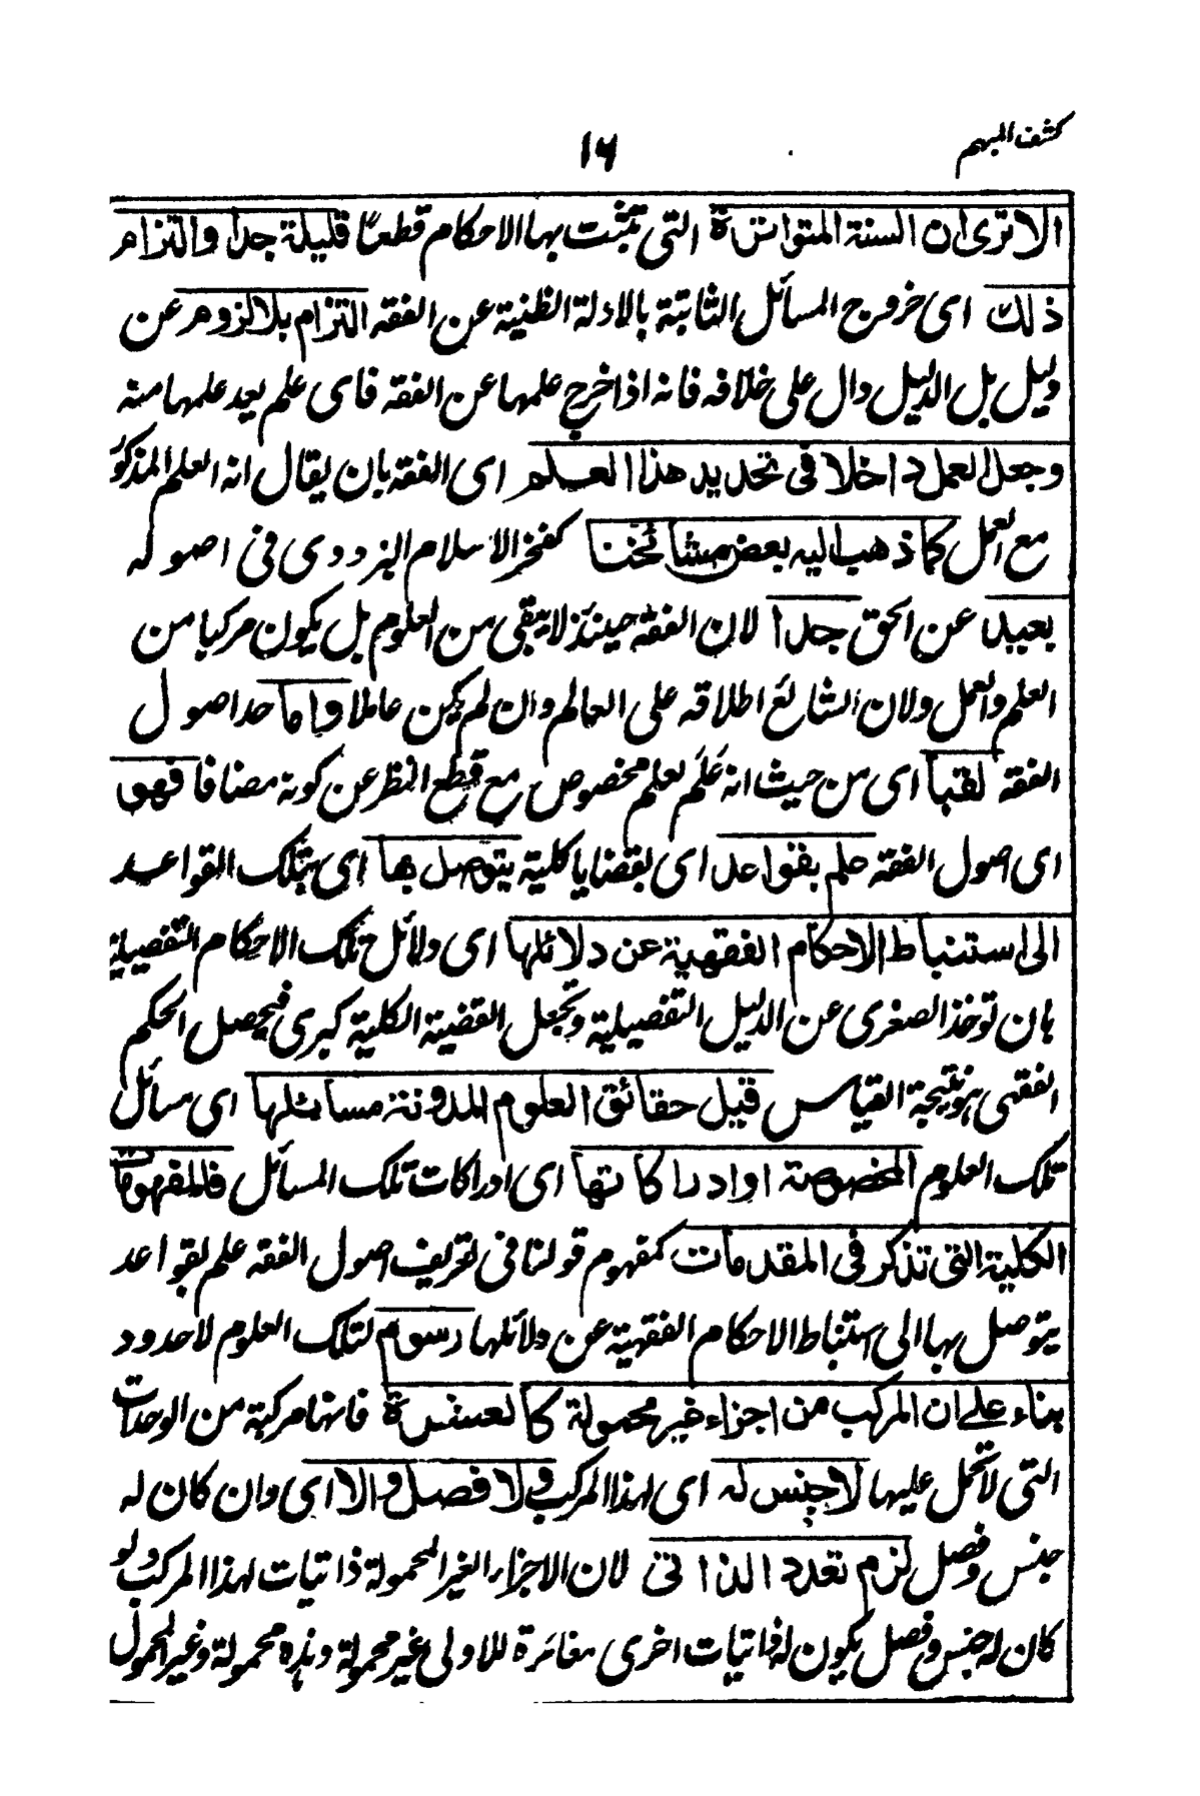 كشف المبهم
١٦
الا ترى ان السنة المتواترة التى تثبت بها الاحكام قطعا قليلة جدا والتزام
ذلك اى خروج المسائل الثابتة بالادلة الظنية عن الفقه التزام بلا لزوم عن
دليل بل الدليل دال على خلافه فانه اذا اخرج علمها عن الفقه فاى علم يعد علمها منه
وجعل العمل داخلا فى تحديد هذا العلم اى الفقه بان يقال انه العلم المذكور
مع العمل كما ذهب اليه بعض مشائخنا كفخر الاسلام البزدوى فى اصوله
بعيد عن الحق جدا لان الفقه حينئذ لا يبقى من العلوم بل يكون مركبا من
العلم والعمل ولان الشائع اطلاقه على العالم وان لم يكن عاملا واما حد اصول
الفقه لقبا اى من حيث انه علم لعلم مخصوص مع قطع النظر عن كونه مضافا فهو
اى اصول الفقه علم بقواعد اى بقضايا كلية يتوصل بها اى بتلك القواعد
الى استنباط الاحكام الفقهية عن دلائلها اى دلائل تلك الاحكام التفصيلية
بان توخذ الصغرى عن الدليل التفصيلية وتجعل القضية الكلية كبرى فيحصل الحكم
الفقهى هو نتيجة القياس قيل حقائق العلوم المدونة مسائلها اى مسائل
تلك العلوم المخصوصة او ادراكاتها اى ادراكات تلك المسائل فالمفهومات
الكلية التى تذكر فى المقدمات كمفهوم قولنا فى تعريف اصول الفقه علم بقواعد
يتوصل بها الى استنباط الاحكام الفقهية عن دلائلها رسوم لتلك العلوم لا حدود
بناء على ان المركب من اجزاء غير محمولة كالعشرة فانها مركبة من الوحدات
التى لا تحمل عليها لا جنس له اى لهذا المركب ولا فصل والا اى وان كان له
جنس وفصل لزم تعدد الذاتى لان الاجزاء الغير المحمولة ذاتيات لهذا المركب ولو
كان له جنس وفصل يكون له ذاتيات اخرى مغائرة للاولى غير محمولة وهذه محمولة وغير المحمول